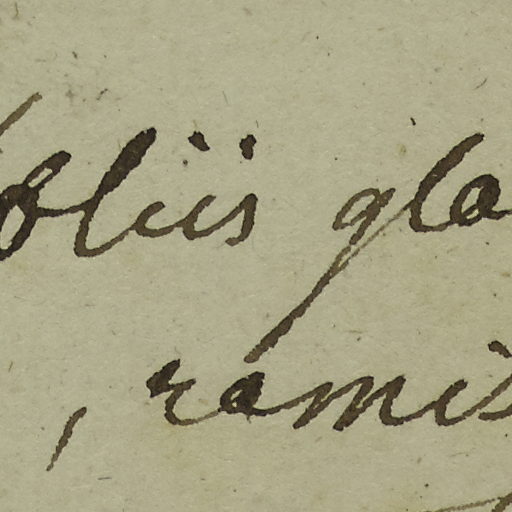 foliis gla
, ramis